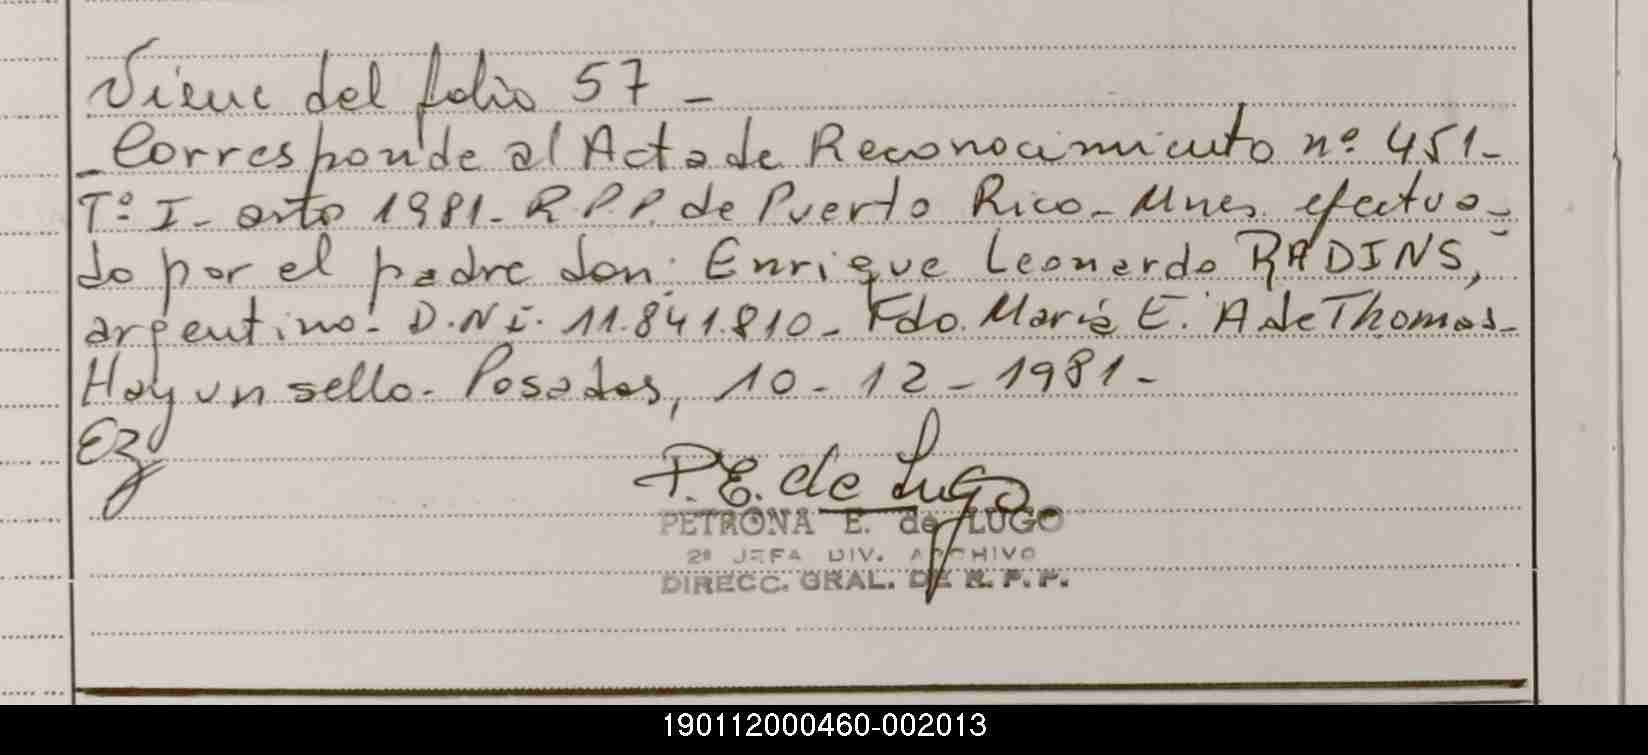 Viene del folio 57 -
- Corresponde al Acta de Reconocimiento nº 451-
Tº I - año 1981 - R.P.P. de Puerto Rico - Mnes. efectua-
do por el padre don: Enrique Leonardo RADINS,
argentino - D.N.I. 11.841.810 - Fdo. María E. A de Thomas -
Hay un sello - Posadas, 10 - 12 - 1981 -
Ez
P.E. de Lugo
PETRONA E. de LUGO
2ª JEFA DIV. ARCHIVO
DIRECC. GRAL. DE R. P. P.
190112000460-002013